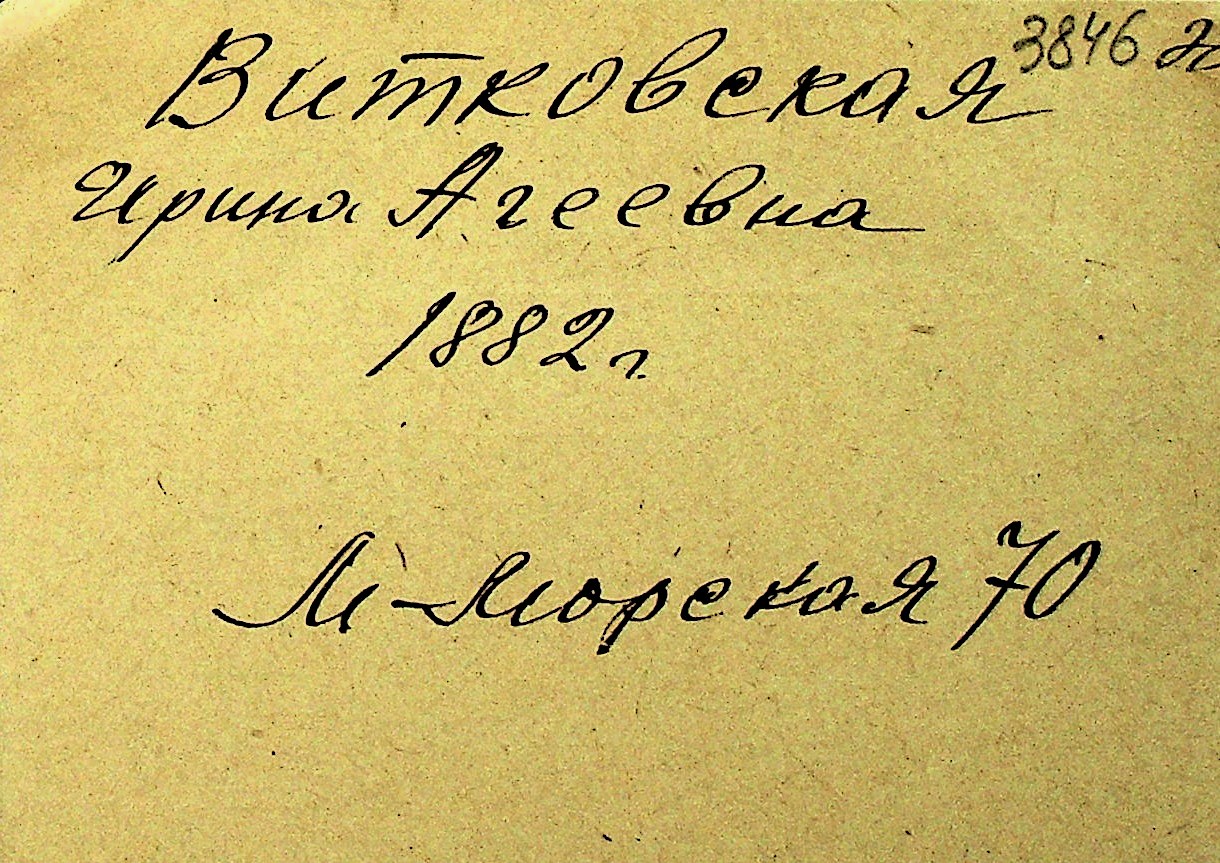 3846
Витковская
Ирина Агеевна
1882 г.
М-Морская 70